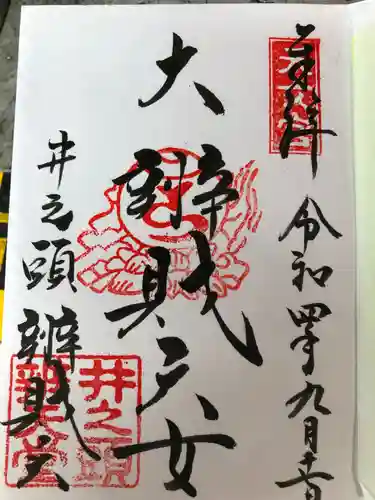 奉拝
令和四年九月
大辨財天女
井之頭辨財天
井之頭